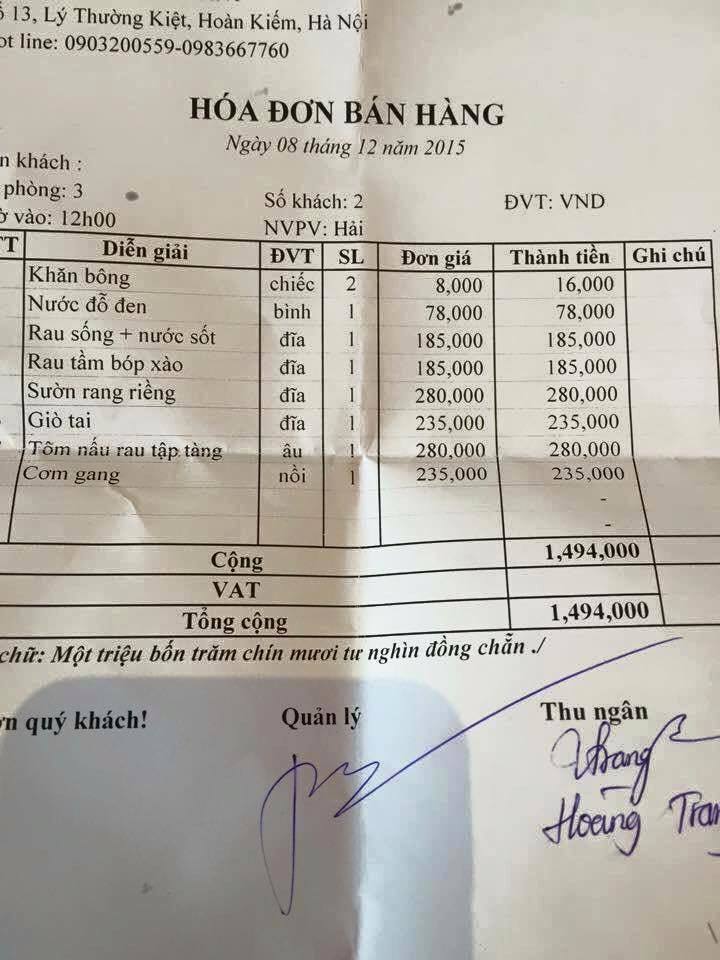 ố 13, Lý Thường Kiệt, Hoàn Kiếm, Hà Nội
ot line: 0903200559-0983667760
HÓA ĐƠN BÁN HÀNG
Ngày 08 tháng 12 năm 2015
n khách :
phòng: 3 Số khách: 2 ĐVT: VND
ờ vào: 12h00 NVPV: Hải
TT Diễn giải ĐVT SL Đơn giá Thành tiền Ghi chú
Khăn bông chiếc 2 8,000 16,000
Nước đỗ đen bình 1 78,000 78,000
Rau sống + nước sốt đĩa 1 185,000 185,000
Rau tầm bóp xào đĩa 1 185,000 185,000
Sườn rang riềng đĩa 1 280,000 280,000
Giò tai đĩa 1 235,000 235,000
Tôm nấu rau tập tàng âu 1 280,000 280,000
Cơm gang nồi 1 235,000 235,000
-
-
Cộng 1,494,000
VAT
Tổng cộng 1,494,000
chữ: Một triệu bốn trăm chín mươi tư nghìn đồng chẵn ./
ơn quý khách! Quản lý Thu ngân
Trang
Hoàng Tran